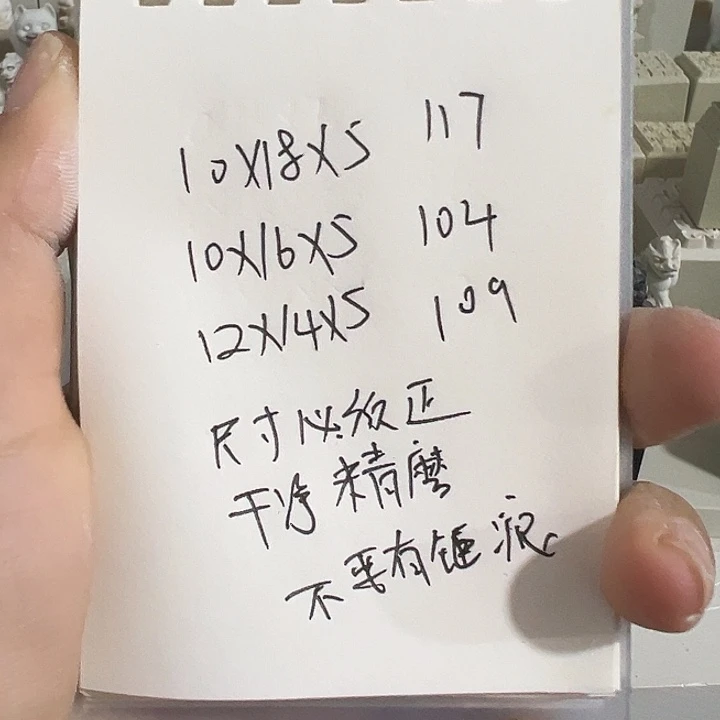 10X18X5 117
10X16X5 104
12X14X5 109
尺寸必须正
干净 精磨
不要有锯痕